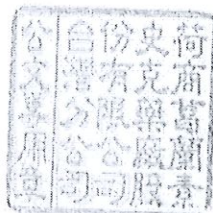 荷商葛蘭素
史克藥廠股
份有限公司
台灣分公司
公文專用章